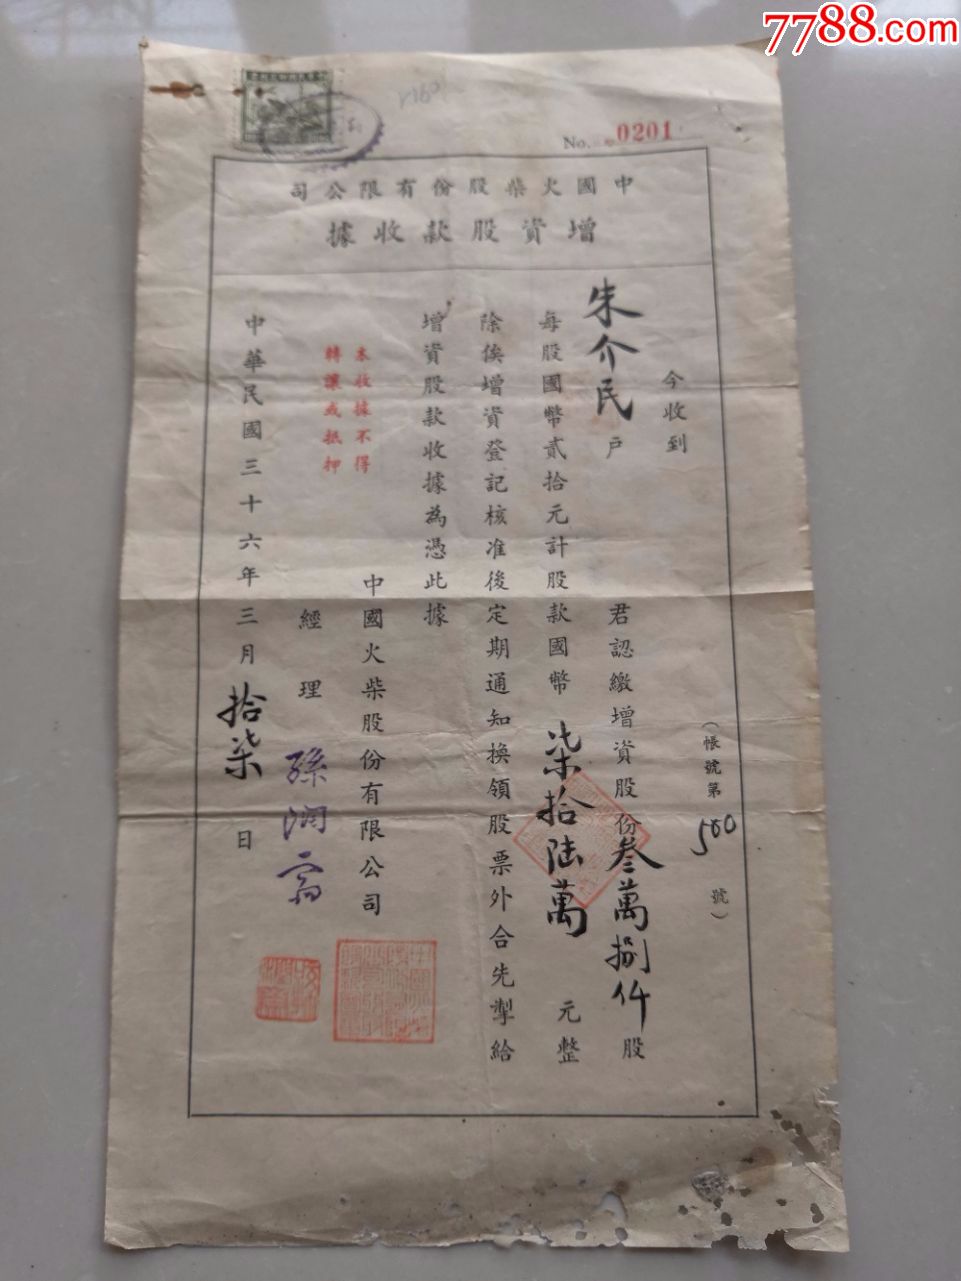 7788.com
No. 0201
中國火柴股份有限公司
增資股款收據
(帳號第500號)
今收到
朱介民戶
君認繳增資股份叁萬捌仟股
每股國幣貳拾元計股款國幣柒拾陸萬元整
除俟增資登記核准後定期通知換領股票外合先掣給
增資股款收據為憑此據
本收據不得
轉讓或抵押
中國火柴股份有限公司
經理 孫潤齋
中華民國三十六年三月拾柒日